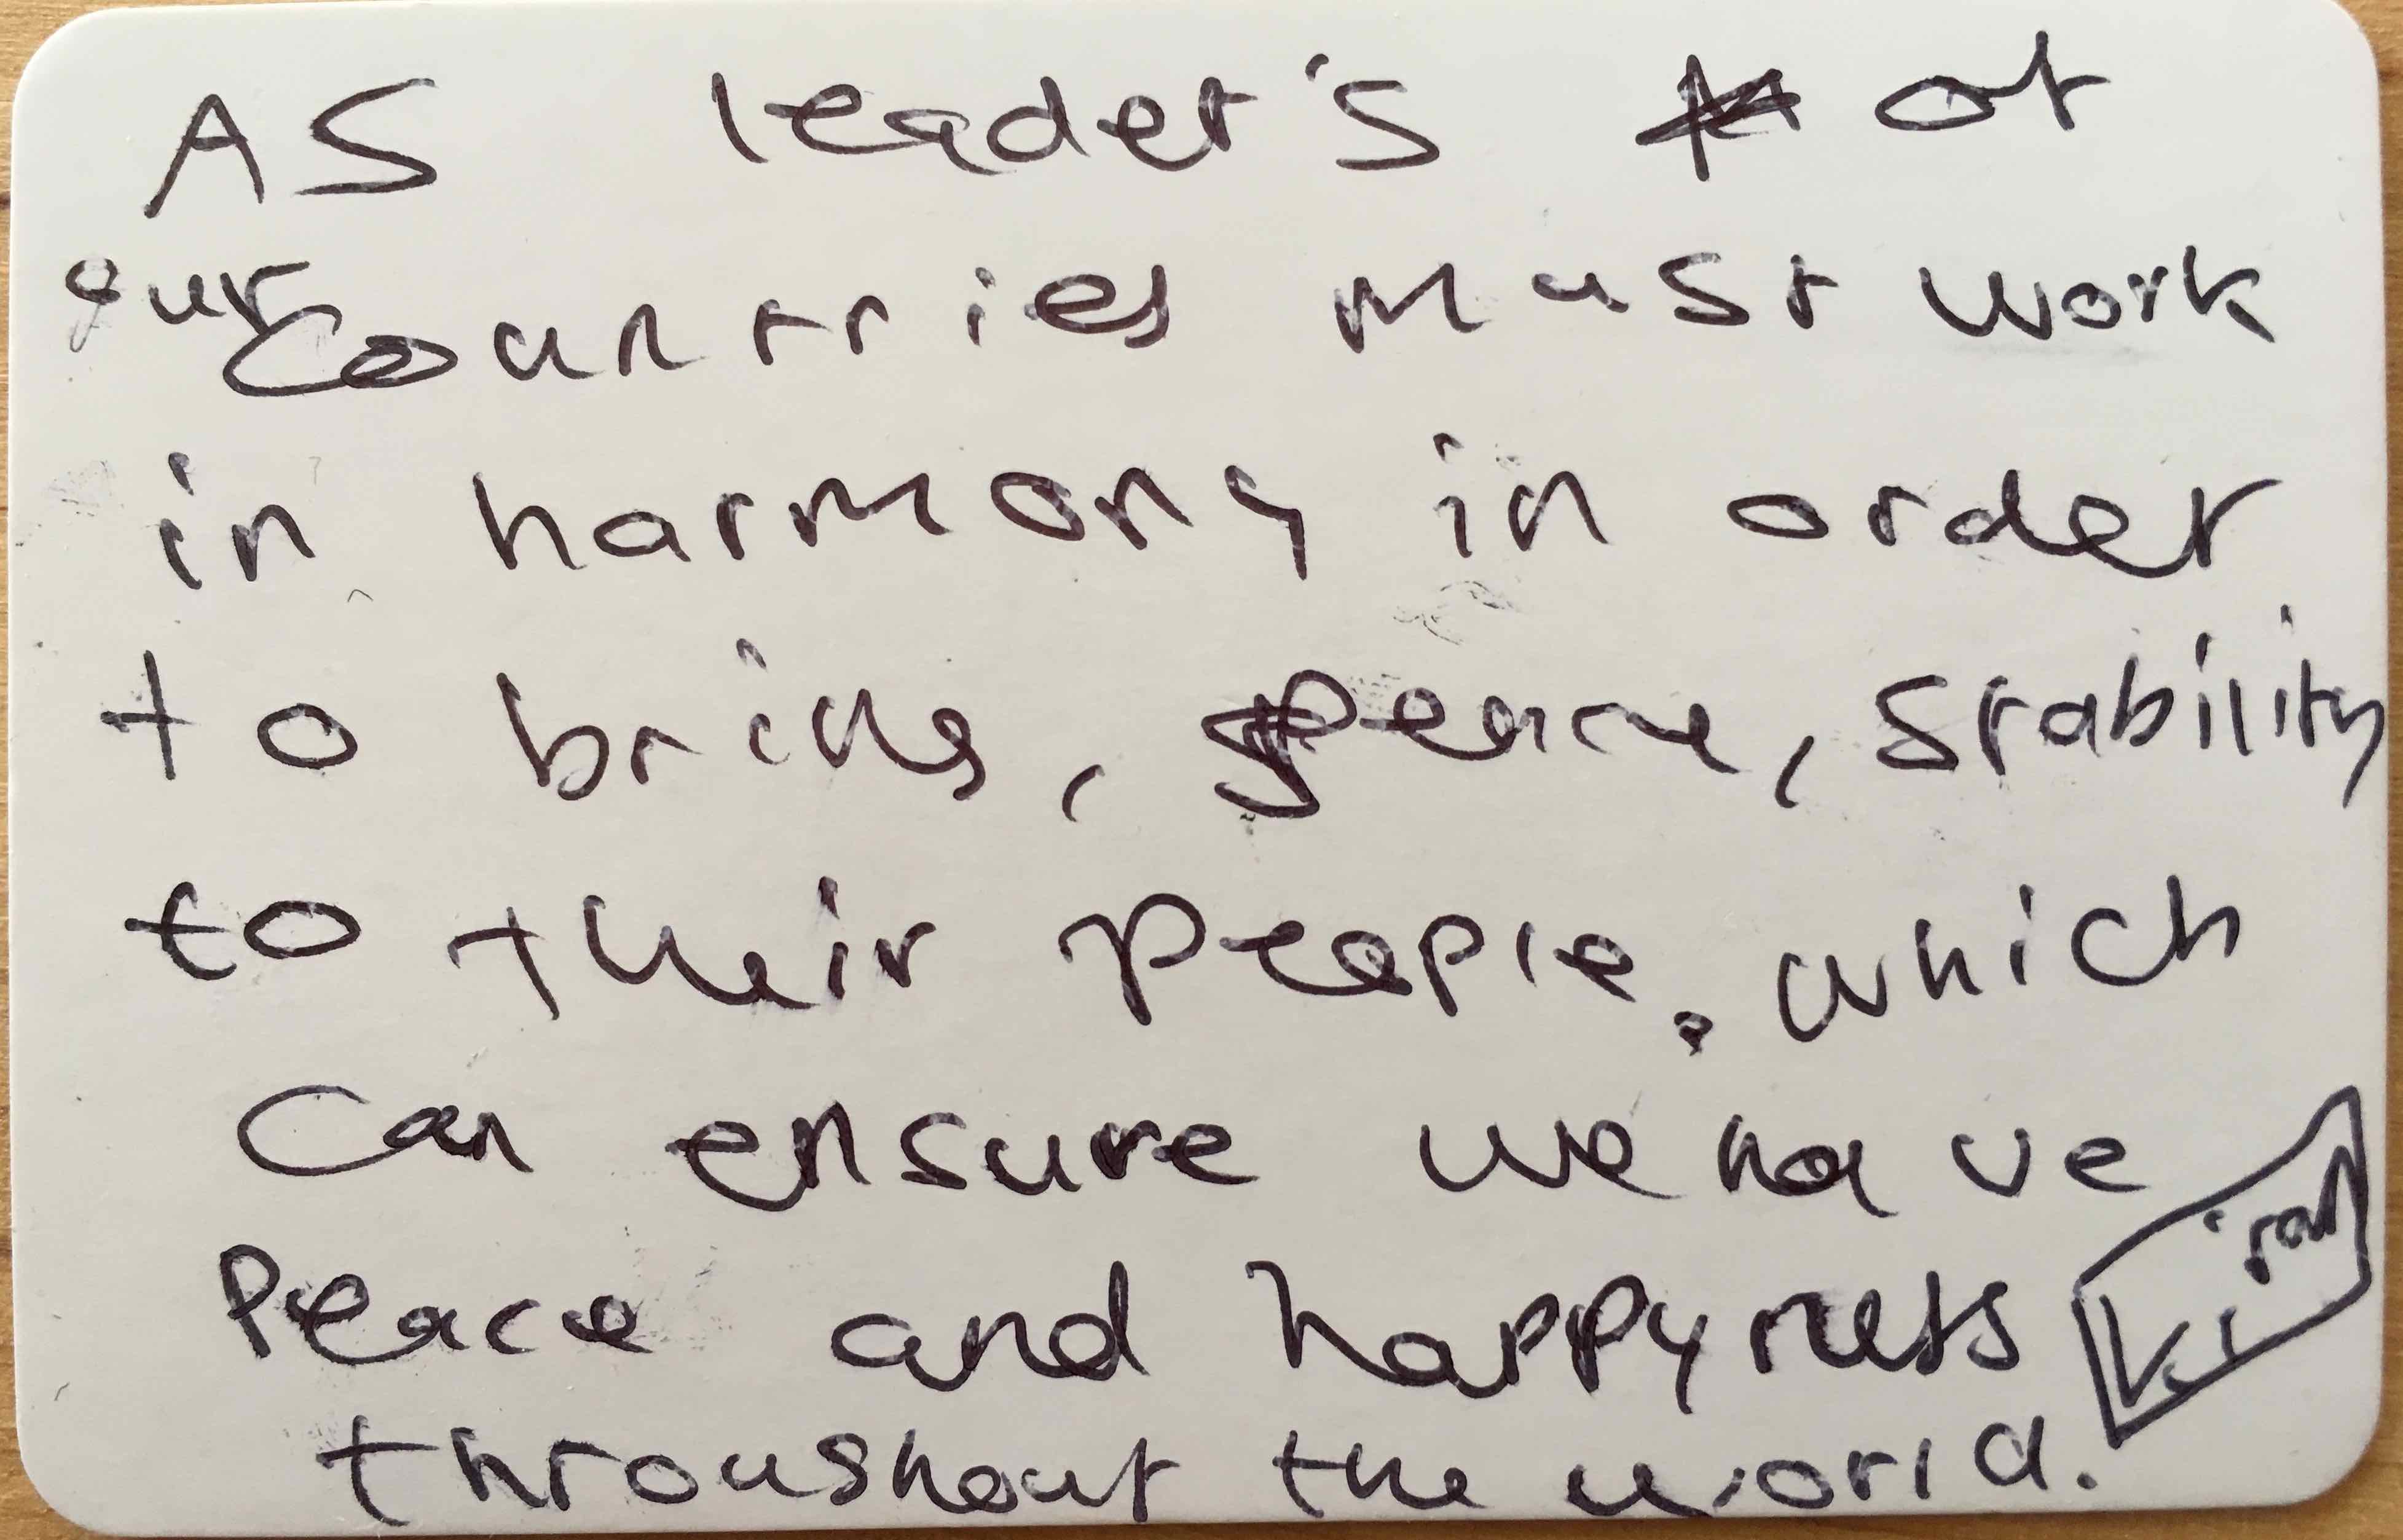 AS leader's of
our Countries must work
in harmony in order
to bring, peace, stability
to their people. which
Can ensure we have
Peace and happyness
throughout the world.
Kiran